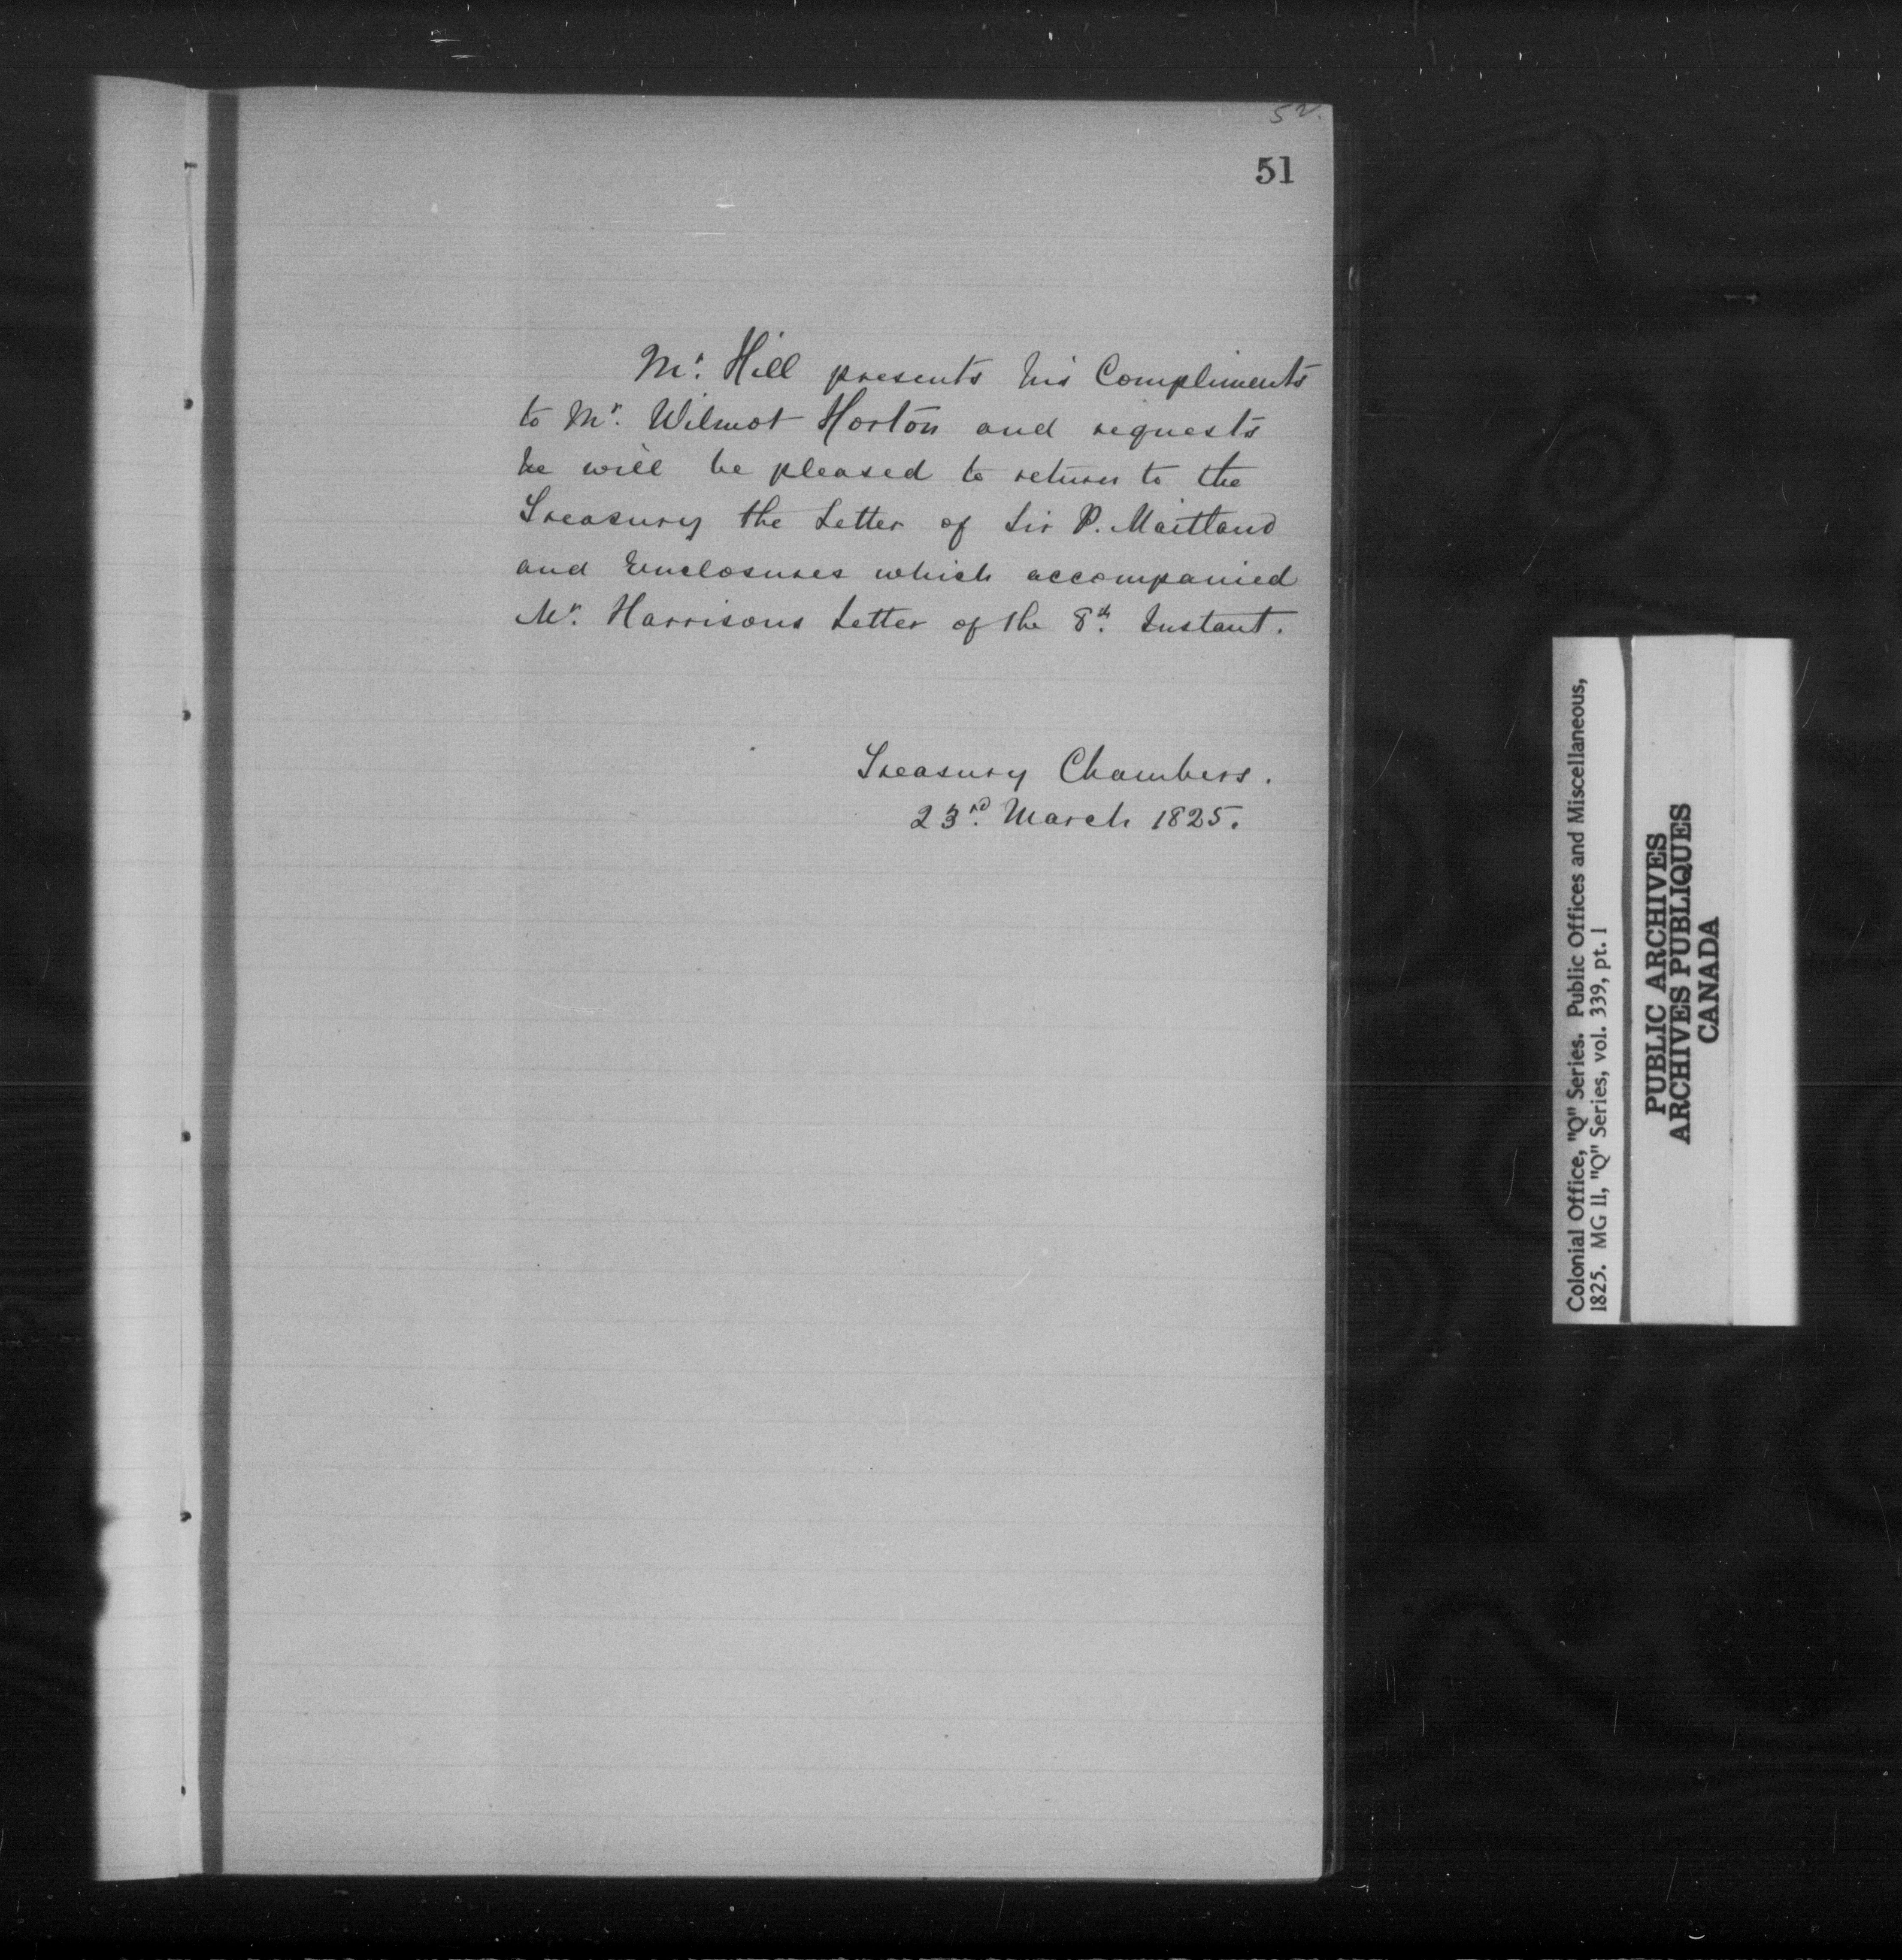 52.
51
Mr. Hill presents his Compliments
to Mr. Wilmot Horton and requests
he will be pleased to return to the
Treasury the Letter of Sir P. Maitland
and Enclosures which accompanied
Mr. Harrisons Letter of the 8th. Instant.
Treasury Chambers.
23rd. March 1825.
Colonial Office, "Q" Series. Public Offices and Miscellaneous,
1825. MG 11, "Q" Series, vol. 339, pt. 1
PUBLIC ARCHIVES
ARCHIVES PUBLIQUES
CANADA